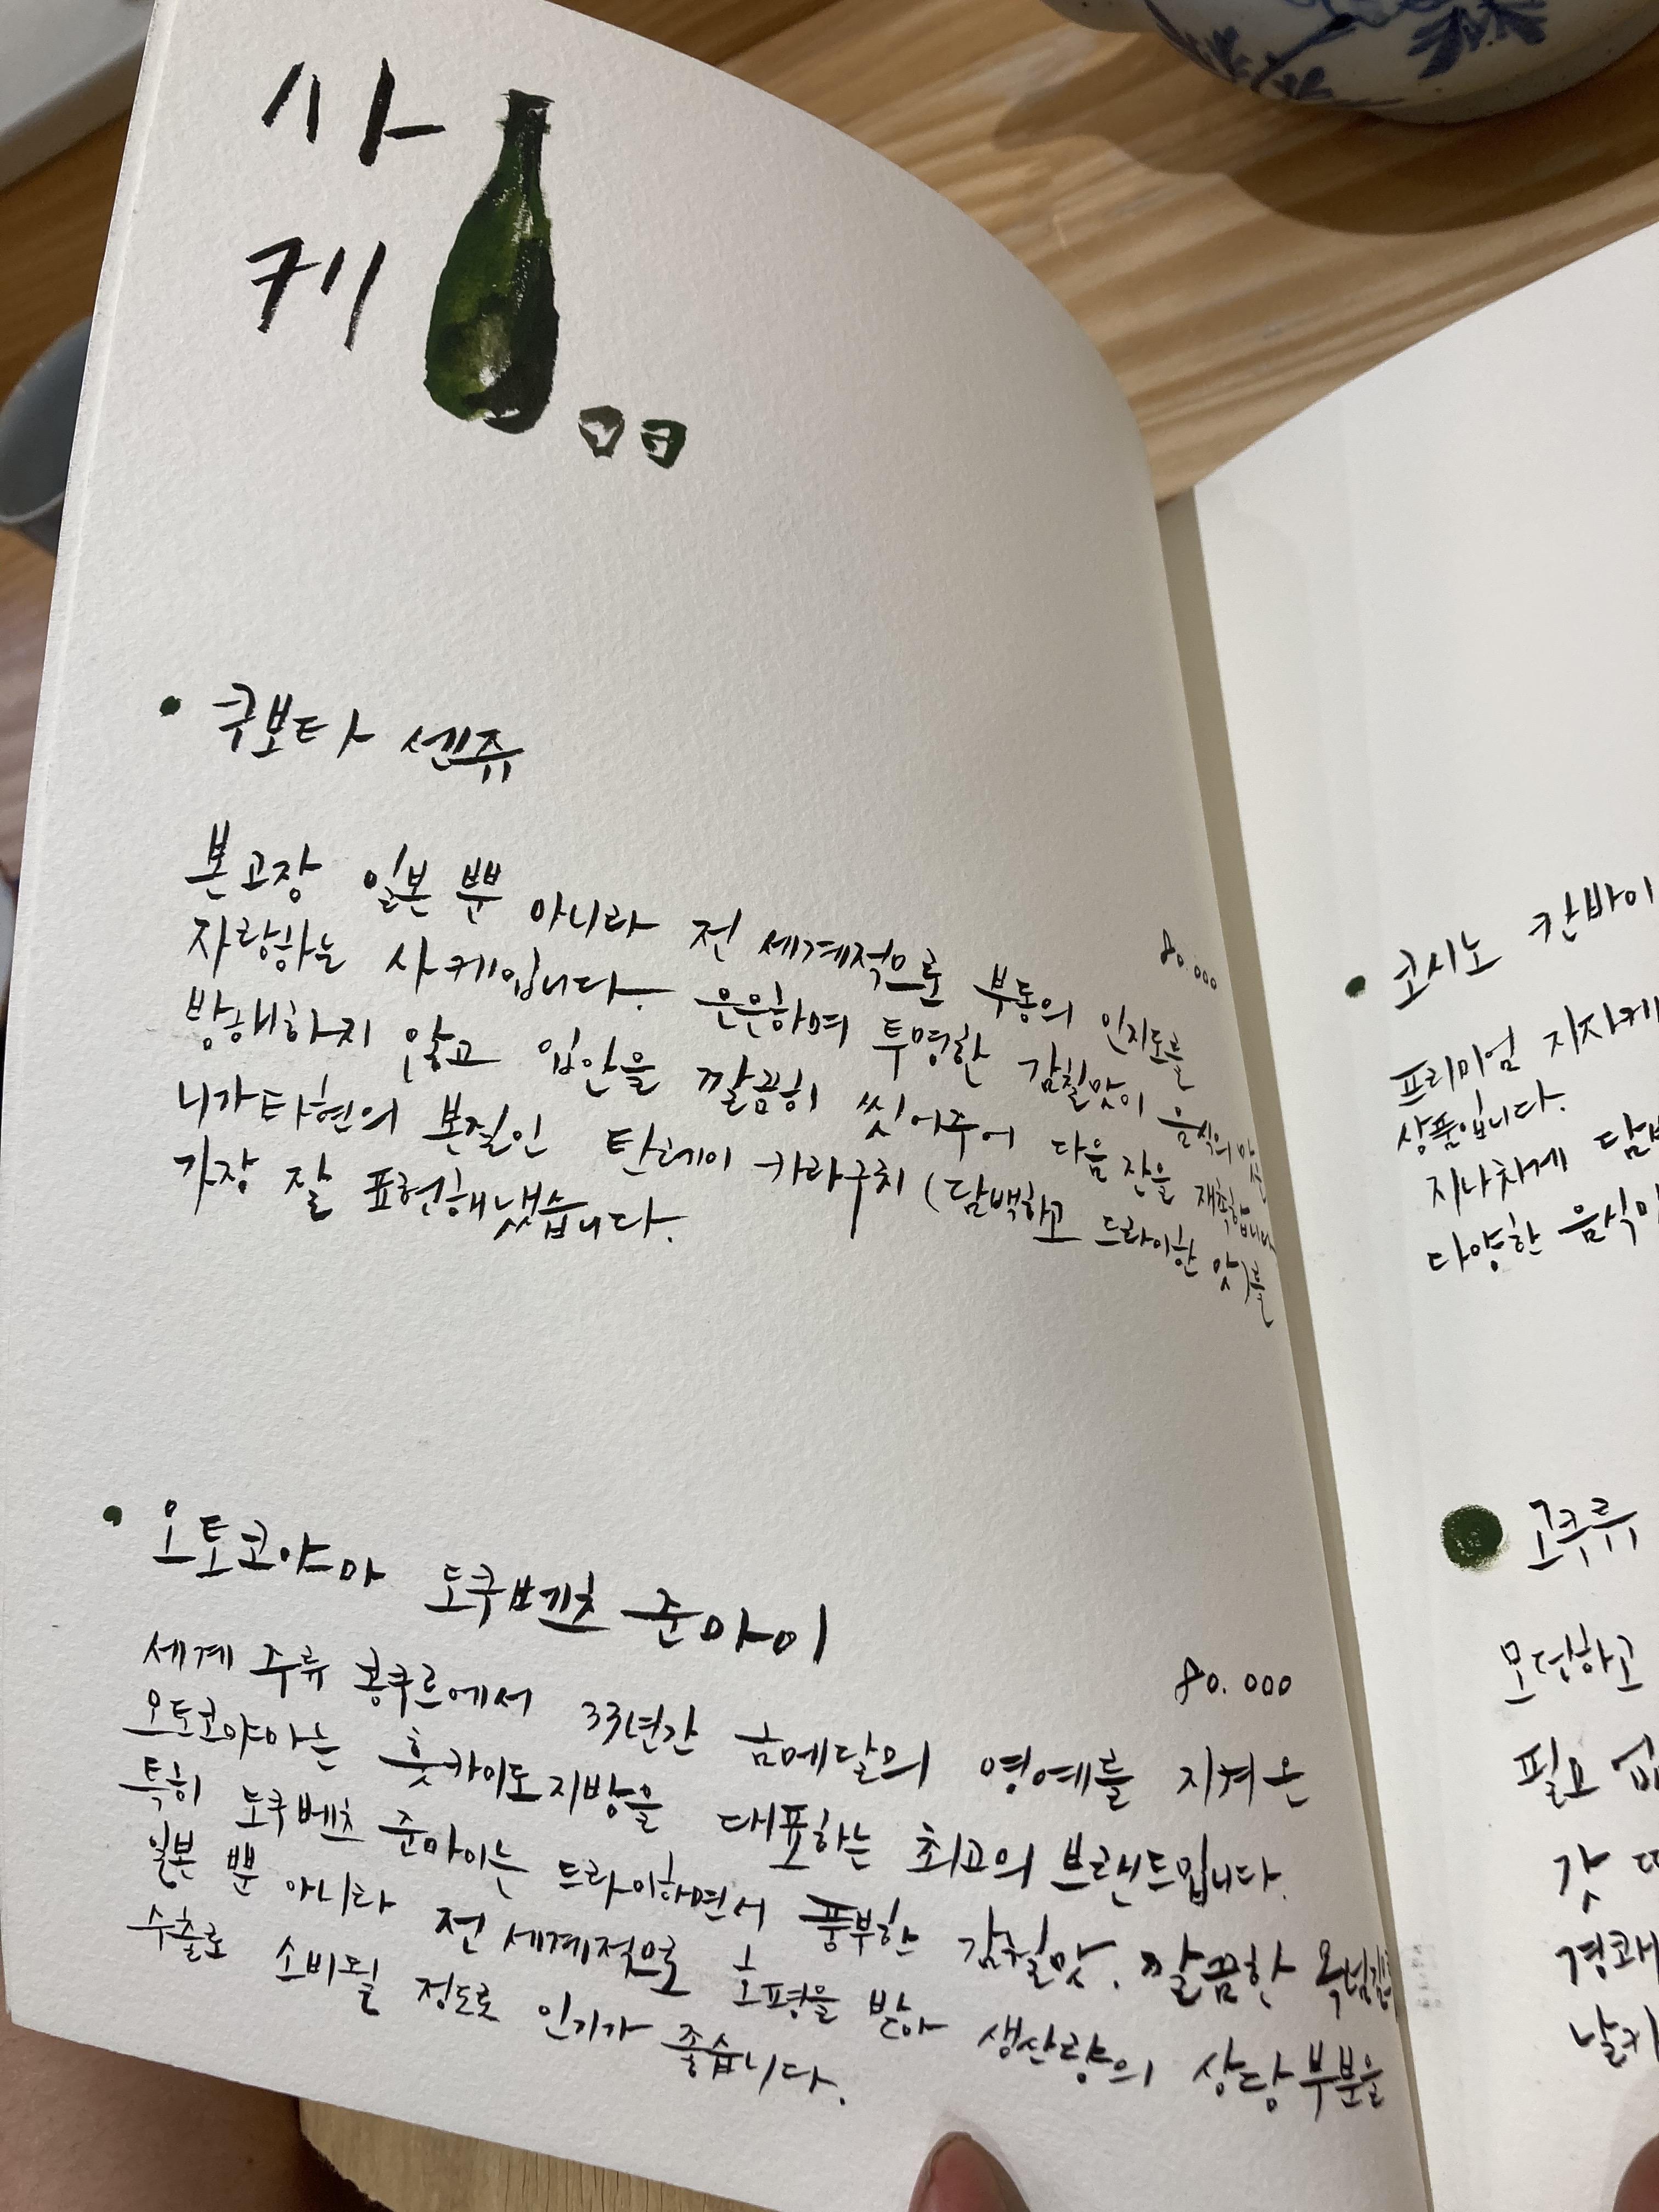 사
케
쿠보타 센쥬
80.000
본고장 일본 뿐 아니라 전 세계적으로 부동의 인지도를
자랑하는 사케입니다. 은은하며 투명한 감칠맛이 음식의 맛을
방해하지 않고 입안을 깔끔히 씻어주어 다음 잔을 재촉합니다
니가타현의 본질인 탄레이 카라구치 (담백하고 드라이한 맛)를
가장 잘 표현해냈습니다.
오토코야마 도쿠베츠 준마이
80.000
세계 주류 콩쿠르에서 33년간 금메달의 영예를 지켜온
오토코야마는 홋카이도지방을 대표하는 최고의 브랜드입니다.
특히 도쿠베츠 준마이는 드라이하면서 풍부한 감칠맛. 깔끔한 목넘김으로
일본 뿐 아니라 전 세계적으로 호평을 받아 생산량의 상당부분을
수출로 소비될 정도로 인기가 좋습니다.
코시노 칸바이
프리미엄 지자케
상품입니다.
지나차게
다양한 음식
고쿠류
모던하고
필요
갓
경쾌